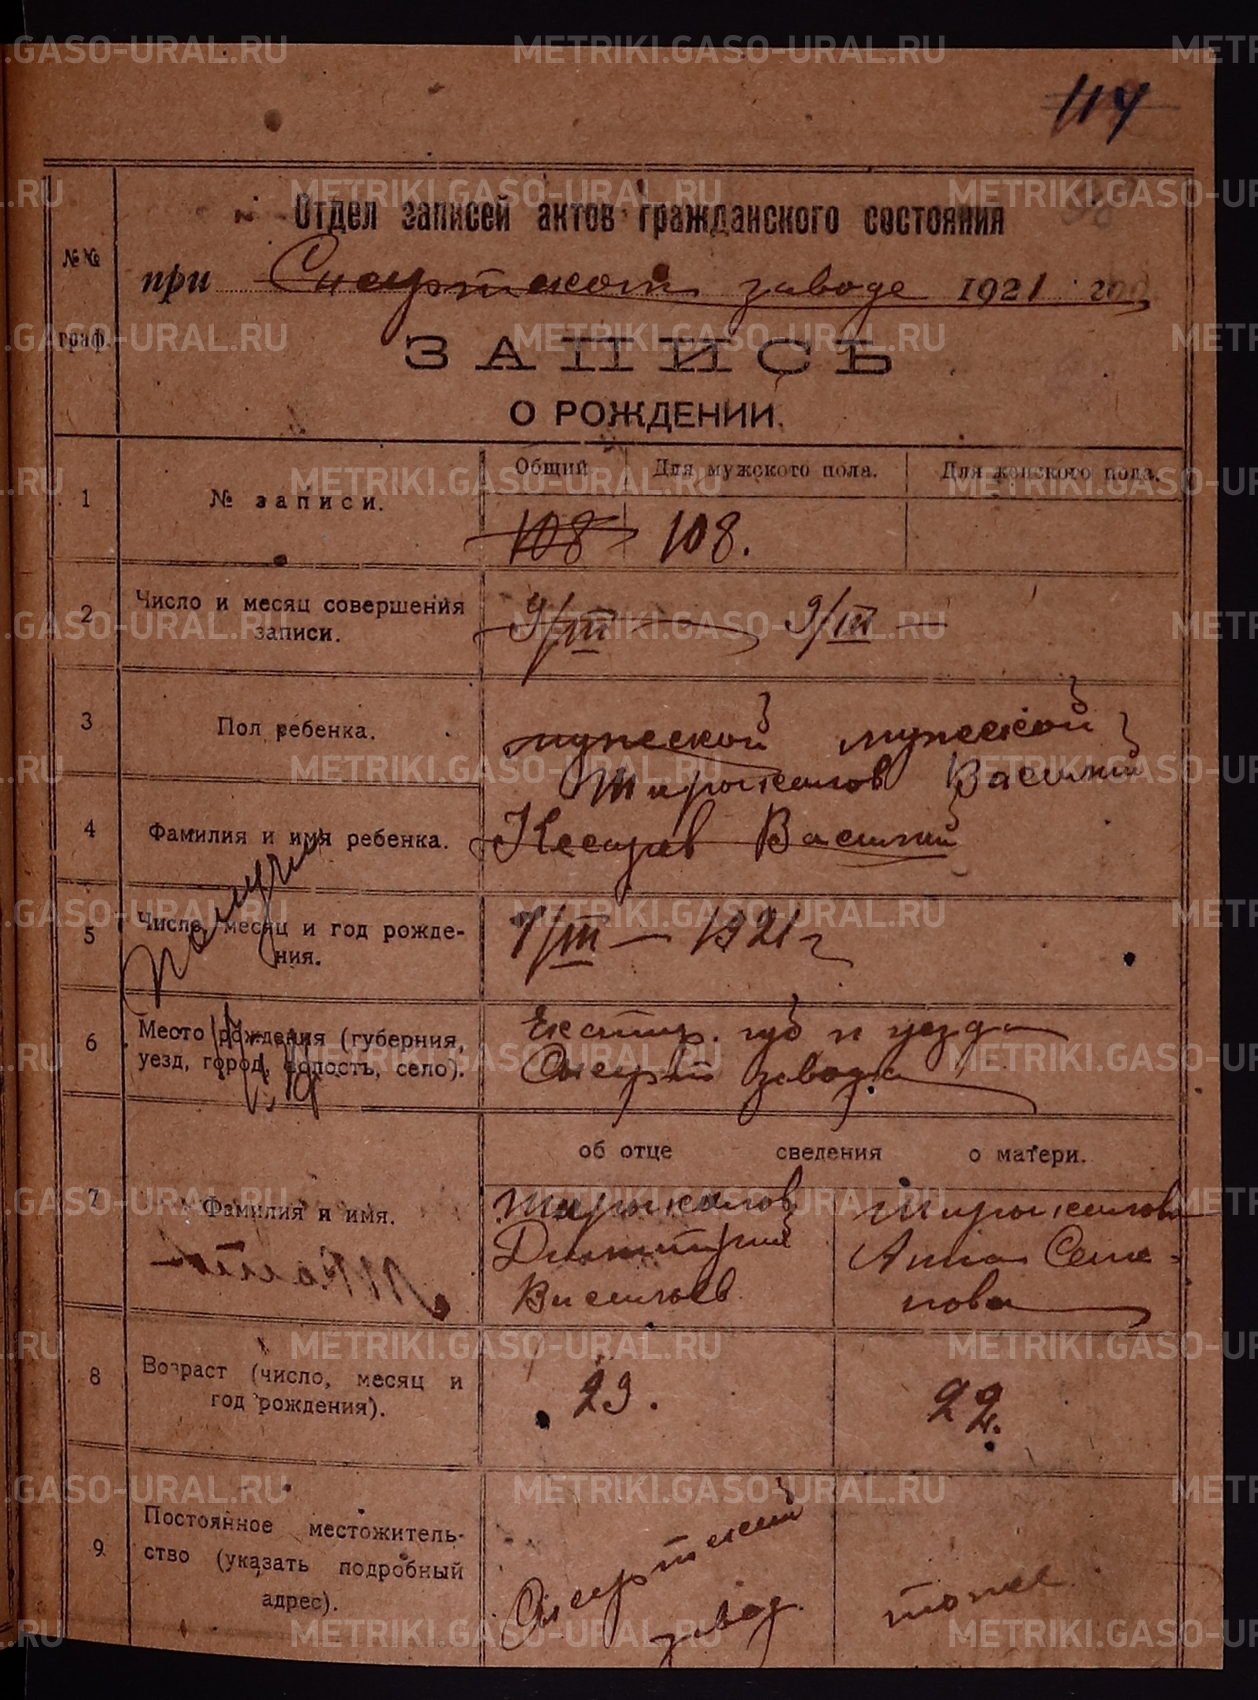 114
98
Отдел записей актов гражданского состояния
№№ граф.
при Сысертском заводе 1921 год
ЗАПИСЬ
О РОЖДЕНИИ.
1
№ записи.
Общий
Для мужского пола.
Для женского пола.
108 108.
2
Число и месяц совершения
записи.
9/III 9/III —
3
Пол ребенка.
мужеской мужеской
Широкалов Василий
4
Фамилия и имя ребенка.
Василий
5
Число, месяц и год рожде-
ния.
7/III — 1921 г
6
Место рождения (губерния,
уезд, город, волость, село).
Екатер. губ и уезда
Сысерт завода
об отце сведения о матери.
7
Фамилия и имя.
Широкалов
Димитрий
Васильев
Широкалова
Анна Семе-
нова
8
Возраст (число, месяц и
год рождения).
23.
22.
9
Постоянное местожитель-
ство (указать подробный
адрес).
Сысертский
завод.
тоже
METRIKI.GASO-URAL.RU